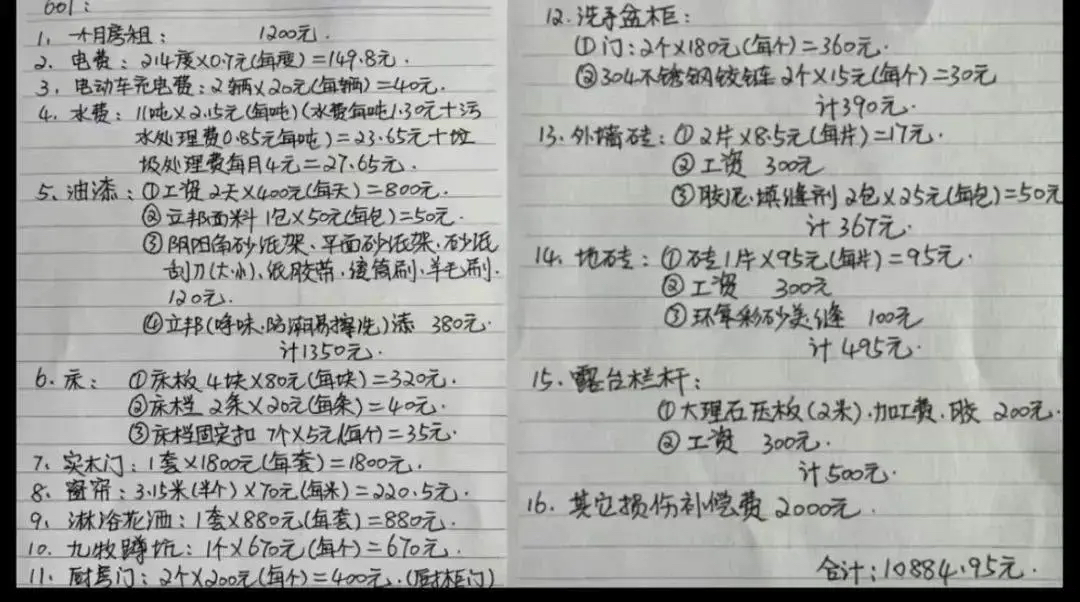 601:
1、一个月房租: 1200元.
2、电费: 214度×0.7元(每度)=149.8元.
3、电动车充电费: 2辆×20元(每辆)=40元.
4、水费: 11吨×2.15元(每吨)(水费每吨1.30元+污
水处理费0.85元每吨)=23.65元+垃
圾处理费每月4元=27.65元.
5、油漆: ①工资 2天×400元(每天)=800元.
②立邦面料 1包×50元(每包)=50元.
③阴阳角砂纸架、平面砂纸架、砂纸
刮刀(大小)、纸胶带、滚筒刷、羊毛刷.
120元.
④立邦(净味.防潮易擦洗)漆 380元.
计1350元.
6、床: ①床板 4块×80元(每块)=320元.
②床档 2条×20元(每条)=40元.
③床档固定扣 7个×5元(每个)=35元.
7、实木门: 1套×1800元(每套)=1800元.
8、窗帘: 3.15米(半个)×70元(每米)=220.5元.
9、淋浴花洒: 1套×880元(每套)=880元.
10、九牧蹲坑: 1个×670元(每个)=670元.
11、厨房门: 2个×200元(每个)=400元.(厨柜门)
12.洗手盆柜:
①门: 2个×180元(每个)=360元.
②304不锈钢铰链 2个×15元(每个)=30元
计390元.
13、外墙砖: ①2片×8.5元(每片)=17元.
②工资 300元
③胶泥.填缝剂 2包×25元(每包)=50元
计367元.
14、地砖: ①砖1片×95元(每片)=95元.
②工资 300元
③环氧彩砂美缝 100元
计495元.
15、露台栏杆:
①大理石压板(2米).加工费、胶 200元.
②工资 300元.
计500元.
16、其它损伤补偿费 2000元.
合计: 10884.95元.